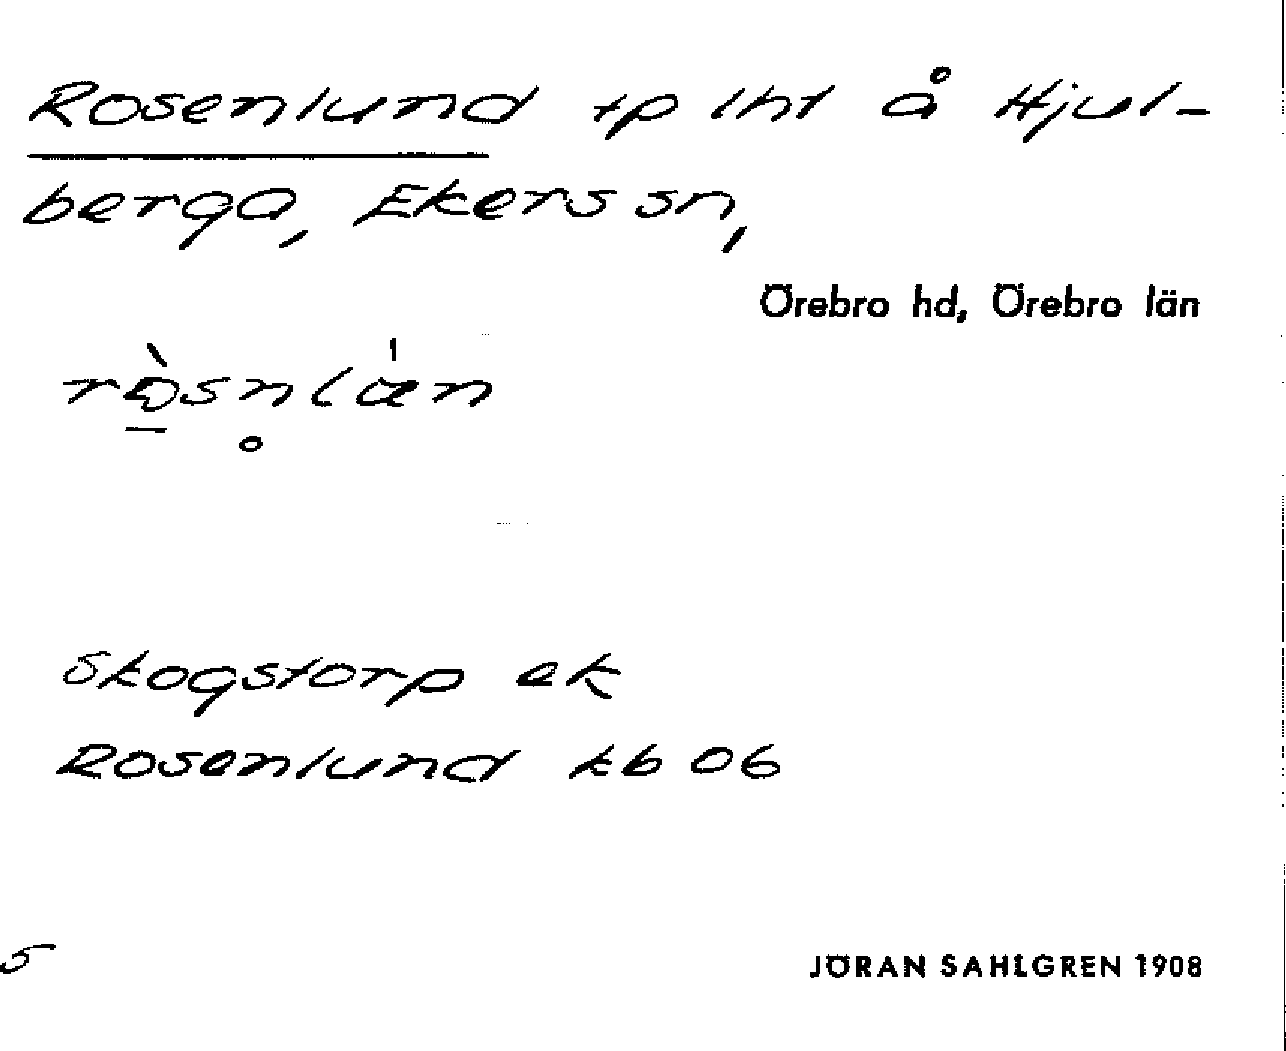 Rosenlund tp lht å Hjul-
berga, Ekers sn,
Örebro hd, Örebro län
Skogstorp ek
Rosenlund kb 06
5
JÖRAN SAHLGREN 1908